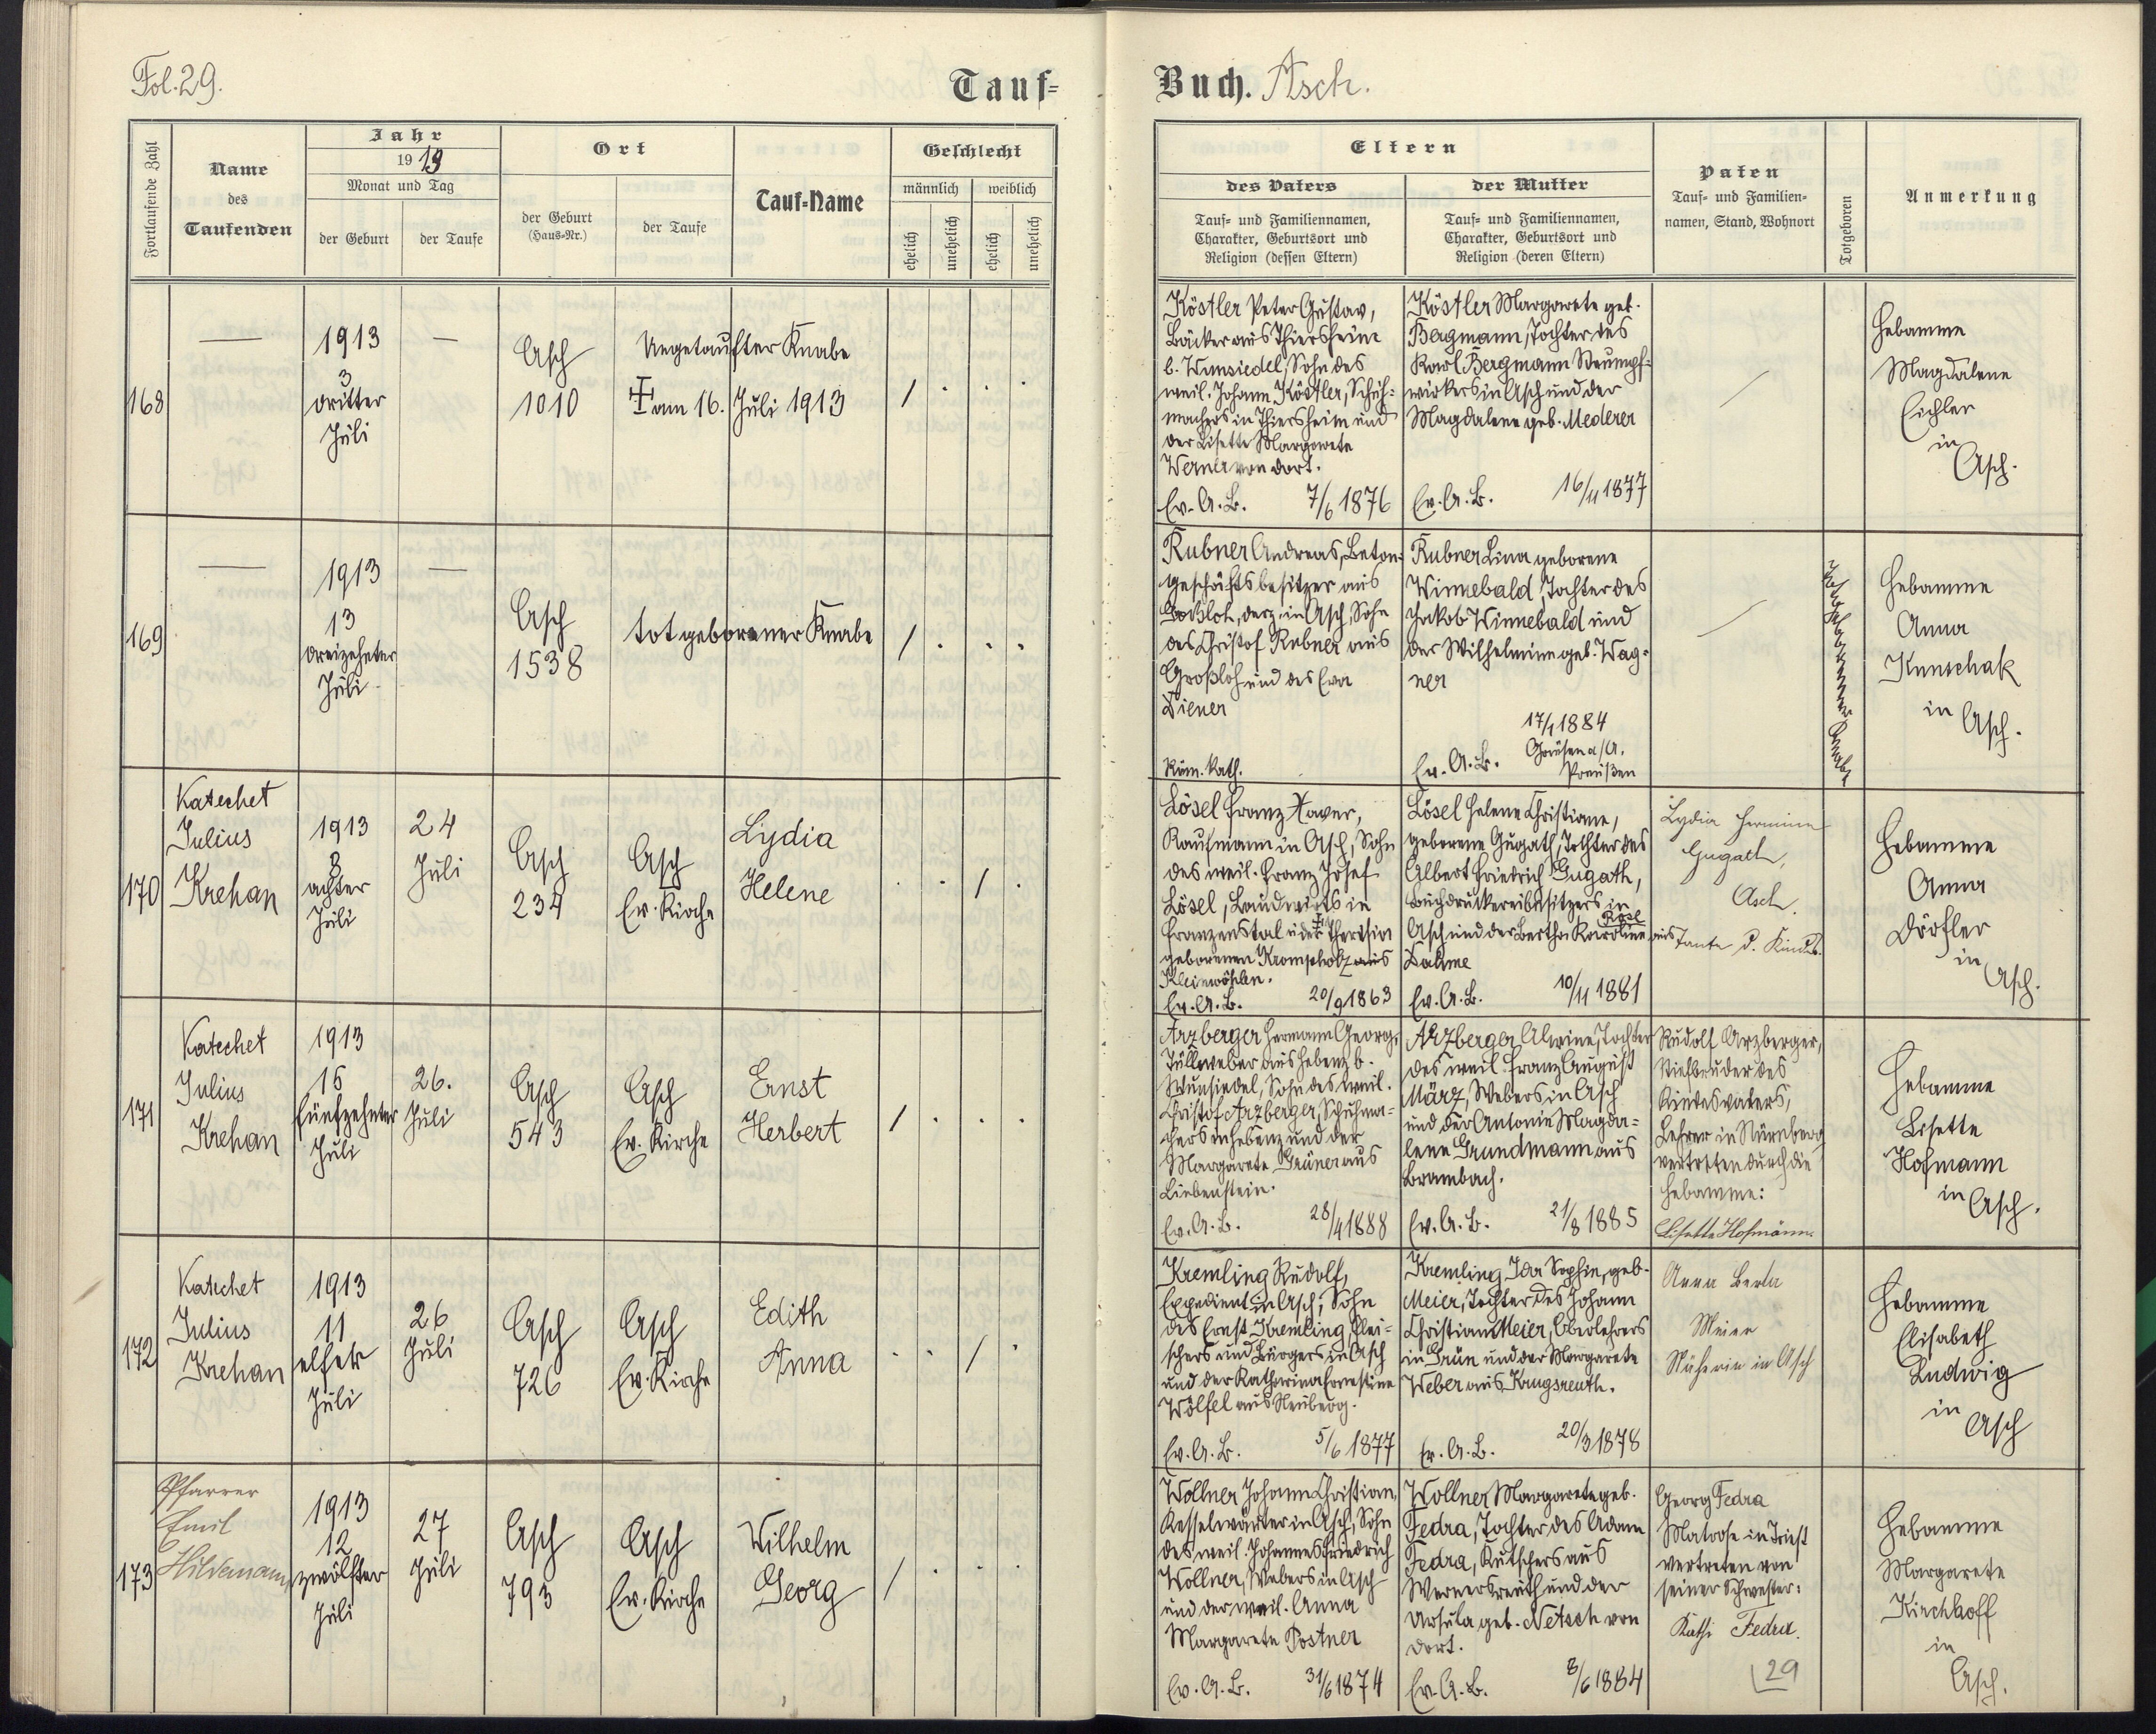 Fol. 29.
Tauf-
Buch. Asch.
Fortlaufende Zahl
Name
des
Taufenden
Jahr
1913
Monat und Tag
der Geburt
der Taufe
Ort
der Geburt
(Haus-Nr.)
der Taufe
Tauf-Name
Geschlecht
männlich
weiblich
ehelich
unehelich
ehelich
unehelich
Eltern
des Vaters
Tauf- und Familiennamen,
Charakter, Geburtsort und
Religion (dessen Eltern)
der Mutter
Tauf- und Familiennamen,
Charakter, Geburtsort und
Religion (deren Eltern)
Paten
Tauf- und Familien-
namen, Stand, Wohnort
Totgeboren
Anmerkung
168
—
1913
3
dritter
Juli
—
Asch
1010
Ungetaufter Knabe
am 16. Juli 1913
/ . . .
Köstler Peter Gustav,
Bäcker aus Thiersheim
b. Wunsiedel, Sohn des
weil. Johann Köstler, Schuh-
machers in Thiersheim und
der Lisette Margarete
Werner von dort.
Ev. A. B. 7/6 1876
Köstler Margarete geb.
Bergmann, Tochter des
Karl Bergmann Strumpf-
wirkers in Asch und der
Magdalene geb. Mederer
Ev. A. B. 16/11 1877
/
Hebamme
Magdalene
Eichler
in
Asch.
169
—
1913
13
dreizehnter
Juli
—
Asch
1538
tot geborener Knabe
/ . . .
Rubner Andreas, Beton-
geschäftsbesitzer aus
Großloh, derz. in Asch, Sohn
des Christof Rubner aus
Großloh und der Eva
Diener
Röm. kath.
Rubner Lina geborene
Winnebald, Tochter des
Jakob Winnebald und
der Wilhelmine geb. Wag-
ner
17/1 1884
Ev. A. B. Preußen
/
Totgeborener Knabe
Hebamme
Anna
Kunschak
in Asch.
170
Katechet
Julius
Krehan
1913
8
achter
Juli
24
Juli
Asch
234
Asch
Ev. Kirche
Lydia
Helene
. . / .
Lösel Franz Xaver,
Kaufmann in Asch, Sohn
des weil. Franz Josef
Lösel, Landwirts in
Franzenstal und der Theresia
geborenen Krompholz aus
Kleinwöhlen.
Ev. A. B. 20/9 1863
Lösel Helene Christiane,
geborene Gugath, Tochter des
Albert Friedrich Gugath,
Buchdruckereibesitzers in
Asch und der Bertha Karoline Rösel aus
Dahme
Ev. A. B. 10/11 1881
Lydia Hermine
Gugath,
Asch.
Tante d. Kindes.
Hebamme
Anna
Dörfler
in
Asch.
171
Katechet
Julius
Krehan
1913
15
fünfzehnter
Juli
26.
Juli
Asch
543
Asch
Ev. Kirche
Ernst
Herbert
/ . . .
Arzberger Hermann Georg,
Tüllweber aus Hebanz b.
Wunsiedel, Sohn des weil.
Christof Arzberger, Schuhma-
chers in Hebanz und der
Margarete Grüner aus
Liebenstein.
Ev. A. B. 28/4 1888
Arzberger Alwine, Tochter
des weil. Franz August
März, Webers in Asch
und der Antonie Magda-
lene Grundmann aus
Brambach.
Ev. A. B. 21/8 1885
Rudolf Arzberger,
Stiefbruder des
Kindesvaters,
Lehrer in Nürnberg
vertreten durch die
Hebamme:
Lisette Hofmann.
Hebamme
Lisette
Hofmann
in
Asch.
172
Katechet
Julius
Krehan
1913
11
elfter
Juli
26
Juli
Asch
726
Asch
Ev. Kirche
Edith
Anna
. . / .
Kremling Rudolf,
Expedient in Asch, Sohn
des Ernst Kremling, Flei-
schers und Bürgers in Asch
und der Katharina Ernestine
Wölfel aus Neuberg.
Ev. A. B. 5/6 1877
Kremling Ida Sophie, geb.
Meier, Tochter des Johann
Christian Meier, Oberlehrers
in Grün und der Margarete
Weber aus Krugsreuth.
Ev. A. B. 20/3 1878
Anna Berta
Meier
Näherin in Asch
Hebamme
Elisabeth
Ludwig
in
Asch
173
Pfarrer
Emil
Hildemann
1913
12
zwölfter
Juli
27
Juli
Asch
793
Asch
Ev. Kirche
Wilhelm
Georg
/ . . .
Wollner Johann Christian,
Kesselwärter in Asch, Sohn
des weil. Johannes Friedrich
Wollner, Webers in Asch
und der weil. Anna
Margarete Postner
Ev. A. B. 31/6 1874
Wollner Margarete geb.
Fedra, Tochter des Adam
Fedra, Kutschers aus
Wernersreuth und der
Ursula geb. Netsch von
dort.
Ev. A. B. 8/6 1884
Georg Fedra
Matrose in Triest
vertreten von
seiner Schwester:
Käthi Fedra.
29
Hebamme
Margarete
Kirchhoff
in
Asch.